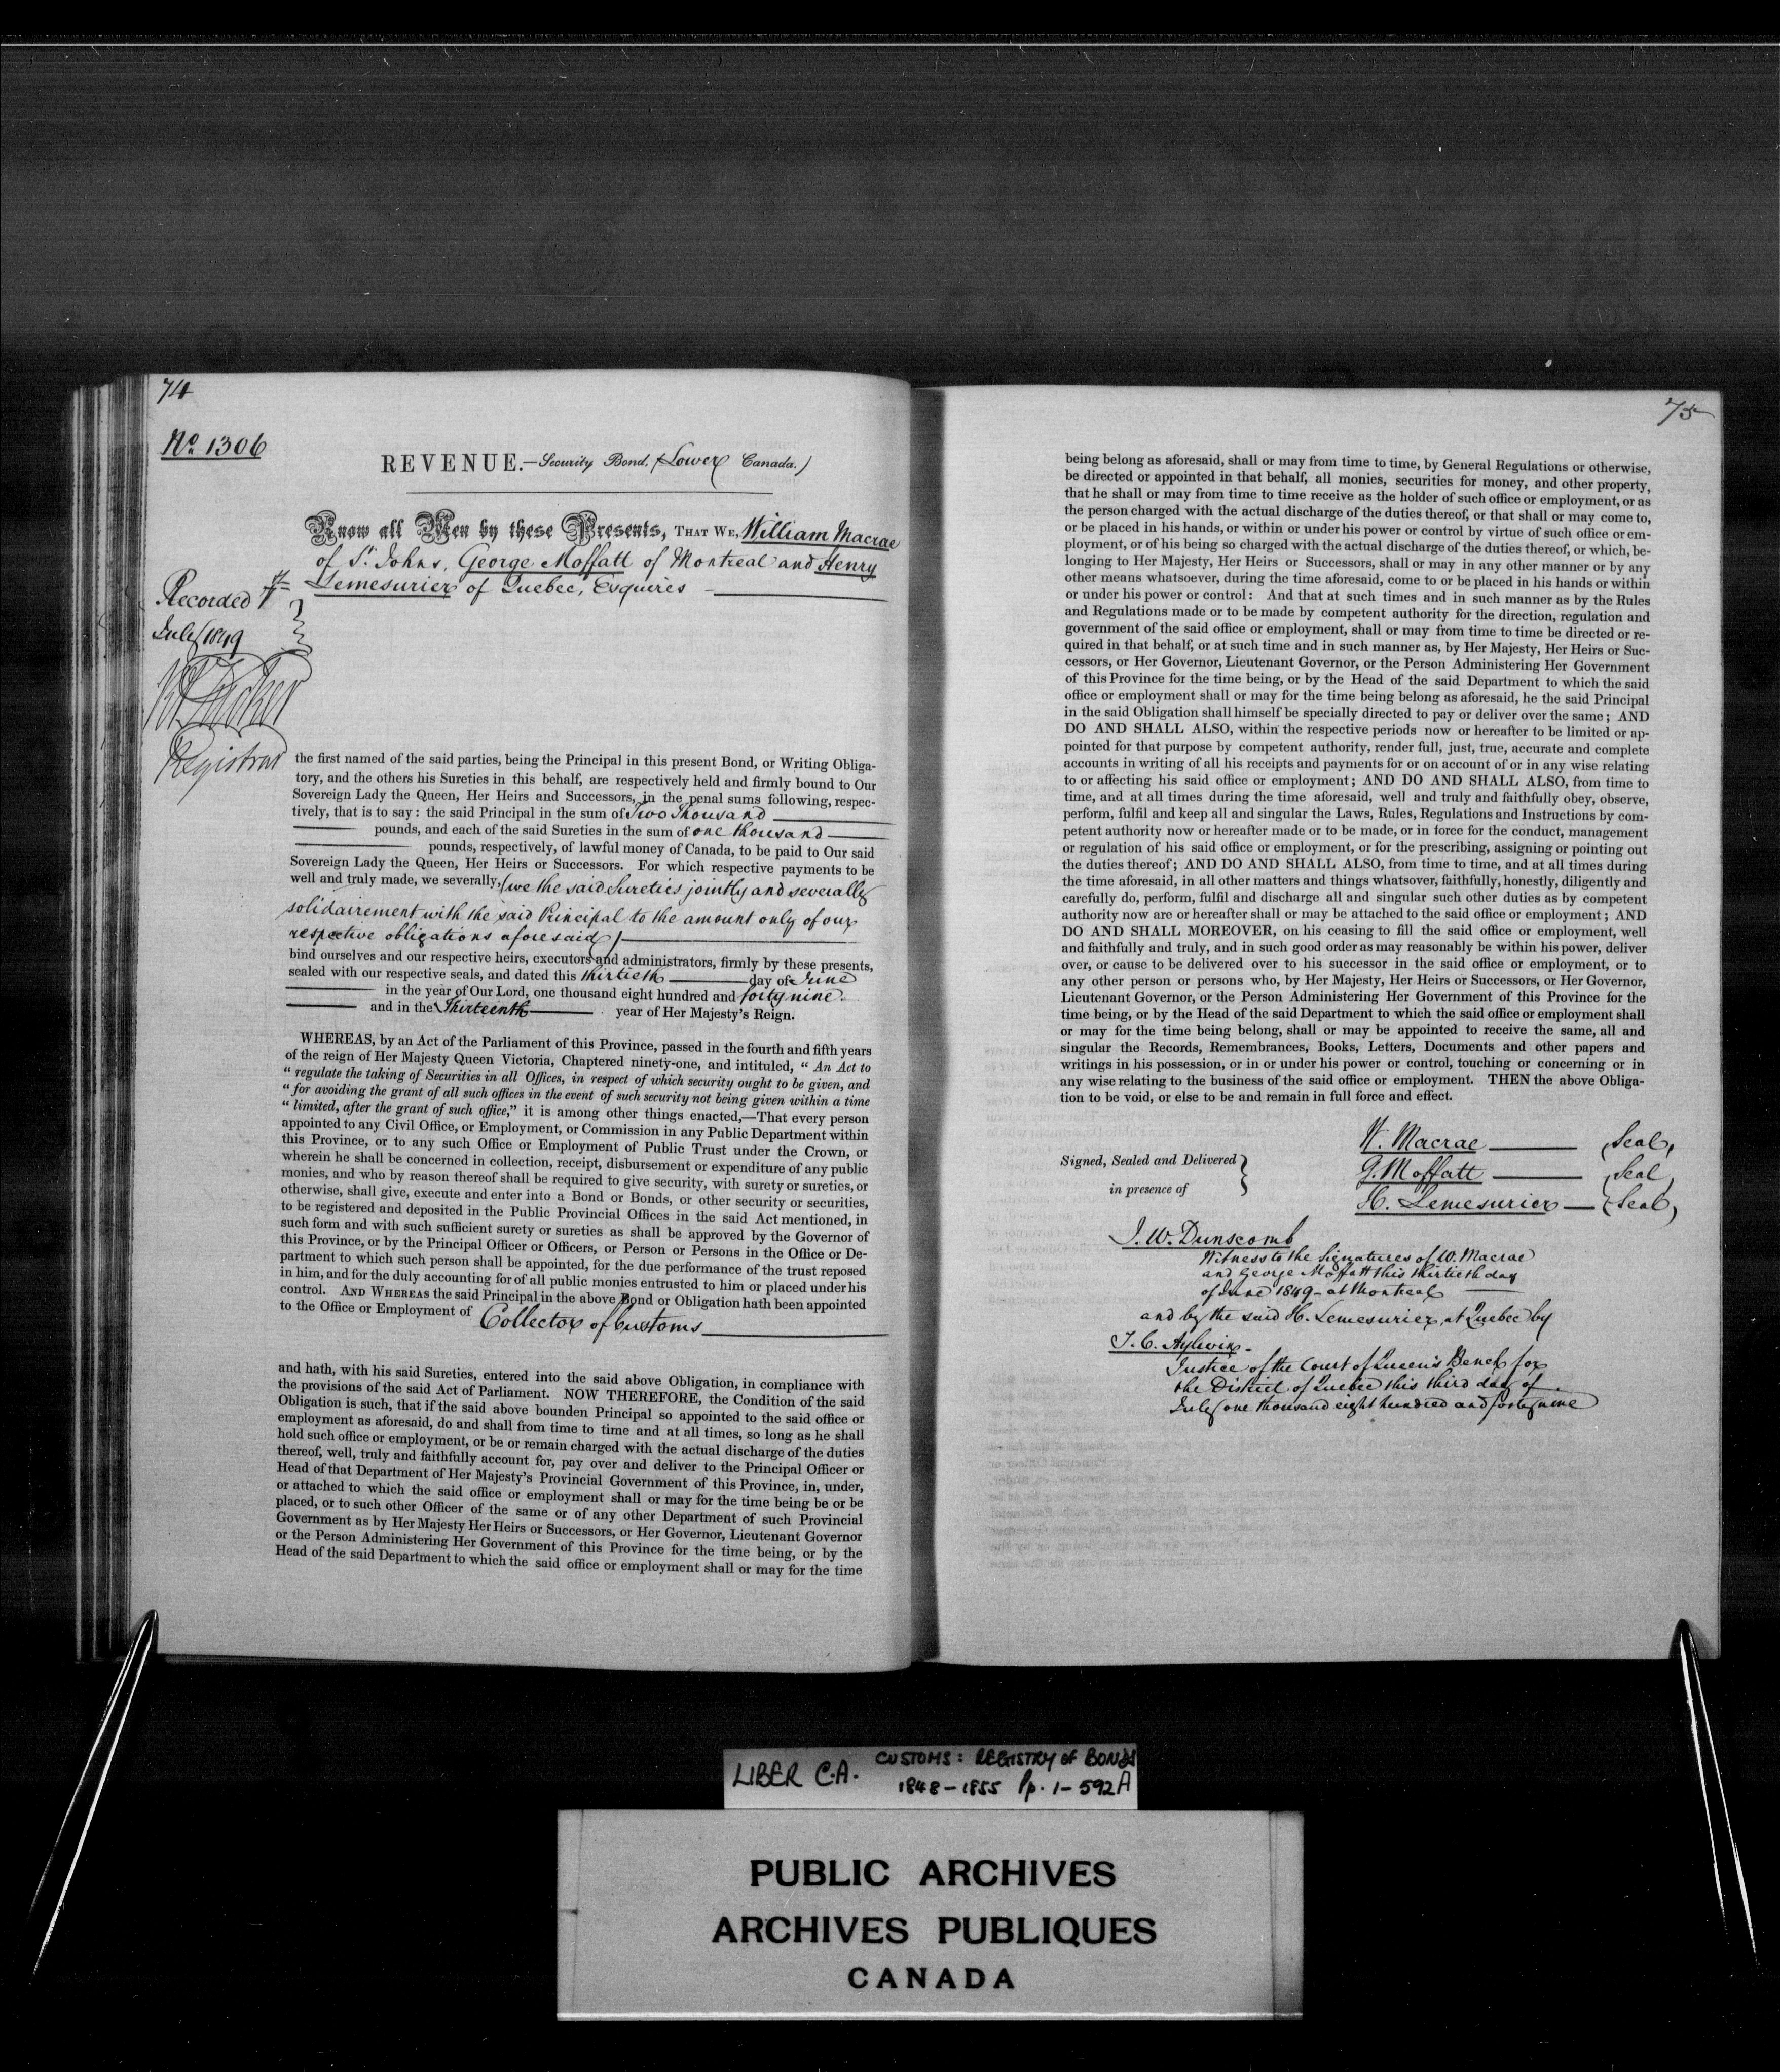 74
No. 1306
REVENUE.—Security Bond. (Lower Canada.)
Know all Men by these Presents, THAT WE, William Macrae
of St. Johns, George Moffatt of Montreal and Henry
Lemesurier of Quebec, Esquires
Recorded 7th
July 1849
Registrar
the first named of the said parties, being the Principal in this present Bond, or Writing Obliga-
tory, and the others his Sureties in this behalf, are respectively held and firmly bound to Our
Sovereign Lady the Queen, Her Heirs and Successors, in the penal sums following, respec-
tively, that is to say: the said Principal in the sum of Two Thousand
pounds, and each of the said Sureties in the sum of one thousand
pounds, respectively, of lawful money of Canada, to be paid to Our said
Sovereign Lady the Queen, Her Heirs or Successors. For which respective payments to be
well and truly made, we severally, (we the said Sureties jointly and severally
solidairement with the said Principal to the amount only of our
respective obligations aforesaid)
bind ourselves and our respective heirs, executors and administrators, firmly by these presents,
sealed with our respective seals, and dated this thirtieth day of June
in the year of Our Lord, one thousand eight hundred and forty nine.
and in the Thirteenth year of Her Majesty's Reign.
WHEREAS, by an Act of the Parliament of this Province, passed in the fourth and fifth years
of the reign of Her Majesty Queen Victoria, Chaptered ninety-one, and intituled, " An Act to
" regulate the taking of Securities in all Offices, in respect of which security ought to be given, and
" for avoiding the grant of all such offices in the event of such security not being given within a time
" limited, after the grant of such office," it is among other things enacted,—That every person
appointed to any Civil Office, or Employment, or Commission in any Public Department within
this Province, or to any such Office or Employment of Public Trust under the Crown, or
wherein he shall be concerned in collection, receipt, disbursement or expenditure of any public
monies, and who by reason thereof shall be required to give security, with surety or sureties, or
otherwise, shall give, execute and enter into a Bond or Bonds, or other security or securities,
to be registered and deposited in the Public Provincial Offices in the said Act mentioned, in
such form and with such sufficient surety or sureties as shall be approved by the Governor of
this Province, or by the Principal Officer or Officers, or Person or Persons in the Office or De-
partment to which such person shall be appointed, for the due performance of the trust reposed
in him, and for the duly accounting for of all public monies entrusted to him or placed under his
control. AND WHEREAS the said Principal in the above Bond or Obligation hath been appointed
to the Office or Employment of Collector of Customs
and hath, with his said Sureties, entered into the said above Obligation, in compliance with
the provisions of the said Act of Parliament. NOW THEREFORE, the Condition of the said
Obligation is such, that if the said above bounden Principal so appointed to the said office or
employment as aforesaid, do and shall from time to time and at all times, so long as he shall
hold such office or employment, or be or remain charged with the actual discharge of the duties
thereof, well, truly and faithfully account for, pay over and deliver to the Principal Officer or
Head of that Department of Her Majesty's Provincial Government of this Province, in, under,
or attached to which the said office or employment shall or may for the time being be or be
placed, or to such other Officer of the same or of any other Department of such Provincial
Government as by Her Majesty Her Heirs or Successors, or Her Governor, Lieutenant Governor
or the Person Administering Her Government of this Province for the time being, or by the
Head of the said Department to which the said office or employment shall or may for the time
75
being belong as aforesaid, shall or may from time to time, by General Regulations or otherwise,
be directed or appointed in that behalf, all monies, securities for money, and other property,
that he shall or may from time to time receive as the holder of such office or employment, or as
the person charged with the actual discharge of the duties thereof, or that shall or may come to,
or be placed in his hands, or within or under his power or control by virtue of such office or em-
ployment, or of his being so charged with the actual discharge of the duties thereof, or which, be-
longing to Her Majesty, Her Heirs or Successors, shall or may in any other manner or by any
other means whatsoever, during the time aforesaid, come to or be placed in his hands or within
or under his power or control: And that at such times and in such manner as by the Rules
and Regulations made or to be made by competent authority for the direction, regulation and
government of the said office or employment, shall or may from time to time be directed or re-
quired in that behalf, or at such time and in such manner as, by Her Majesty, Her Heirs or Suc-
cessors, or Her Governor, Lieutenant Governor, or the Person Administering Her Government
of this Province for the time being, or by the Head of the said Department to which the said
office or employment shall or may for the time being belong as aforesaid, he the said Principal
in the said Obligation shall himself be specially directed to pay or deliver over the same; AND
DO AND SHALL ALSO, within the respective periods now or hereafter to be limited or ap-
pointed for that purpose by competent authority, render full, just, true, accurate and complete
accounts in writing of all his receipts and payments for or on account of or in any wise relating
to or affecting his said office or employment; AND DO AND SHALL ALSO, from time to
time, and at all times during the time aforesaid, well and truly and faithfully obey, observe,
perform, fulfil and keep all and singular the Laws, Rules, Regulations and Instructions by com-
petent authority now or hereafter made or to be made, or in force for the conduct, management
or regulation of his said office or employment, or for the prescribing, assigning or pointing out
the duties thereof; AND DO AND SHALL ALSO, from time to time, and at all times during
the time aforesaid, in all other matters and things whatsover, faithfully, honestly, diligently and
carefully do, perform, fulfil and discharge all and singular such other duties as by competent
authority now are or hereafter shall or may be attached to the said office or employment; AND
DO AND SHALL MOREOVER, on his ceasing to fill the said office or employment, well
and faithfully and truly, and in such good order as may reasonably be within his power, deliver
over, or cause to be delivered over to his successor in the said office or employment, or to
any other person or persons who, by Her Majesty, Her Heirs or Successors, or Her Governor,
Lieutenant Governor, or the Person Administering Her Government of this Province for the
time being, or by the Head of the said Department to which the said office or employment shall
or may for the time being belong, shall or may be appointed to receive the same, all and
singular the Records, Remembrances, Books, Letters, Documents and other papers and
writings in his possession, or in or under his power or control, touching or concerning or in
any wise relating to the business of the said office or employment. THEN the above Obliga-
tion to be void, or else to be and remain in full force and effect.
W. Macrae (Seal)
Signed, Sealed and Delivered
in presence of
G. Moffatt (Seal)
H. Lemesurier (Seal)
J. W. Dunscomb
Witness to the Signatures of W. Macrae
and George Moffatt this thirtieth day
of June 1849 - at Montreal
and by the said H. Lemesurier, at Quebec by
T. C. Aylwin -
Justice of the Court of Queen's Bench for
the District of Quebec this third day of
July one thousand eight hundred and forty nine
LIBER C.A. CUSTOMS: REGISTRY OF BONDS
1848-1855 Pp. 1-592A
PUBLIC ARCHIVES
ARCHIVES PUBLIQUES
CANADA